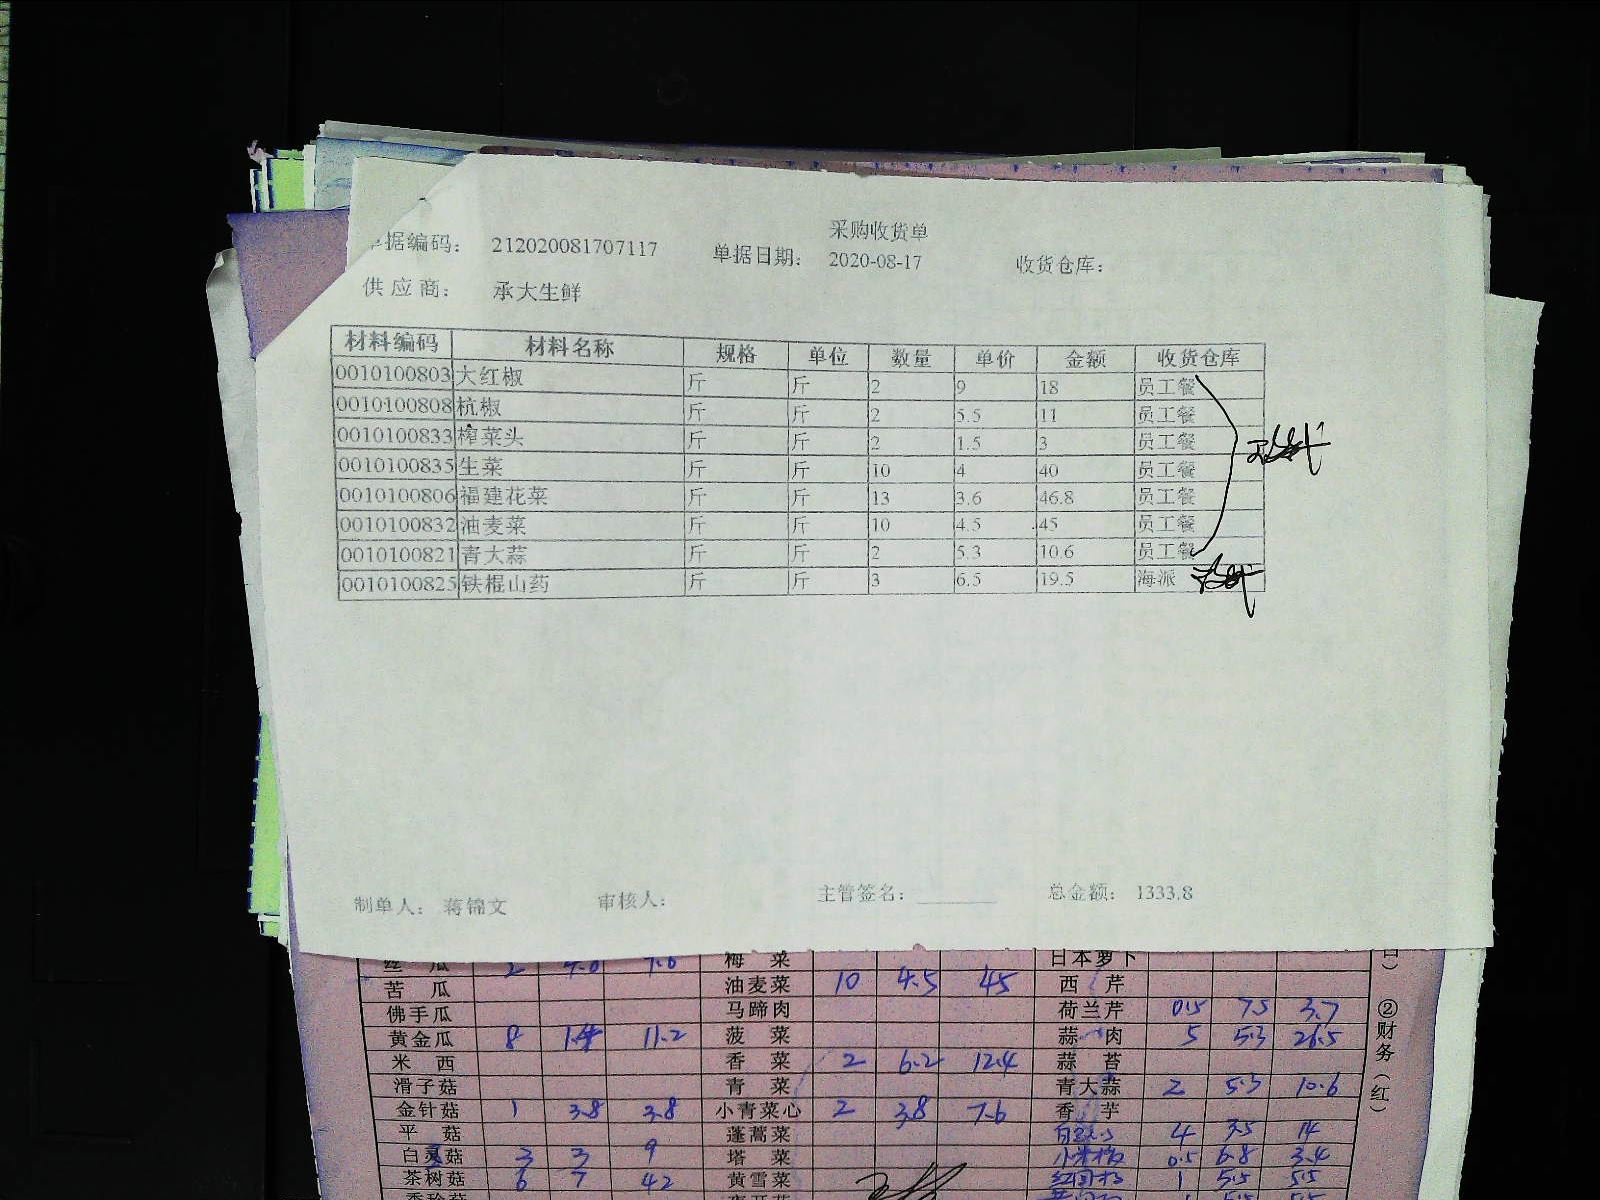 采购收货单
单据编码： 212020081707117 单据日期： 2020-08-17 收货仓库：
供应商： 承大生鲜
材料编码 材料名称 规格 单位 数量 单价 金额 收货仓库
0010100803 大红椒 斤 斤 2 9 18 员工餐
0010100808 杭椒 斤 斤 2 5.5 11 员工餐
0010100833 榨菜头 斤 斤 2 1.5 3 员工餐
0010100835 生菜 斤 斤 10 4 40 员工餐
0010100806 福建花菜 斤 斤 13 3.6 46.8 员工餐
0010100832 油麦菜 斤 斤 10 4.5 45 员工餐
0010100821 青大蒜 斤 斤 2 5.3 10.6 员工餐
0010100825 铁棍山药 斤 斤 3 6.5 19.5 海派
制单人： 蒋锦文 审核人： 主管签名： 总金额： 1333.8
丝瓜 2 梅菜 日本萝卜
苦瓜 油麦菜 10 4.5 45 西芹
佛手瓜 马蹄肉 荷兰芹 0.5 7.5 3.7
黄金瓜 8 1.4 11.2 菠菜 蒜肉 5 5.3 26.5
米西 香菜 2 6.2 12.4 蒜苔
滑子菇 青菜 青大蒜 2 5.3 10.6
金针菇 1 3.8 3.8 小青菜心 2 3.8 7.6 香芋
平菇 蓬蒿菜 4 3.5 14
白灵菇 3 3 9 塔菜 小米椒 0.5 6.8 3.4
茶树菇 6 7 42 黄雪菜 1 5.5 5.5
②财务（红）